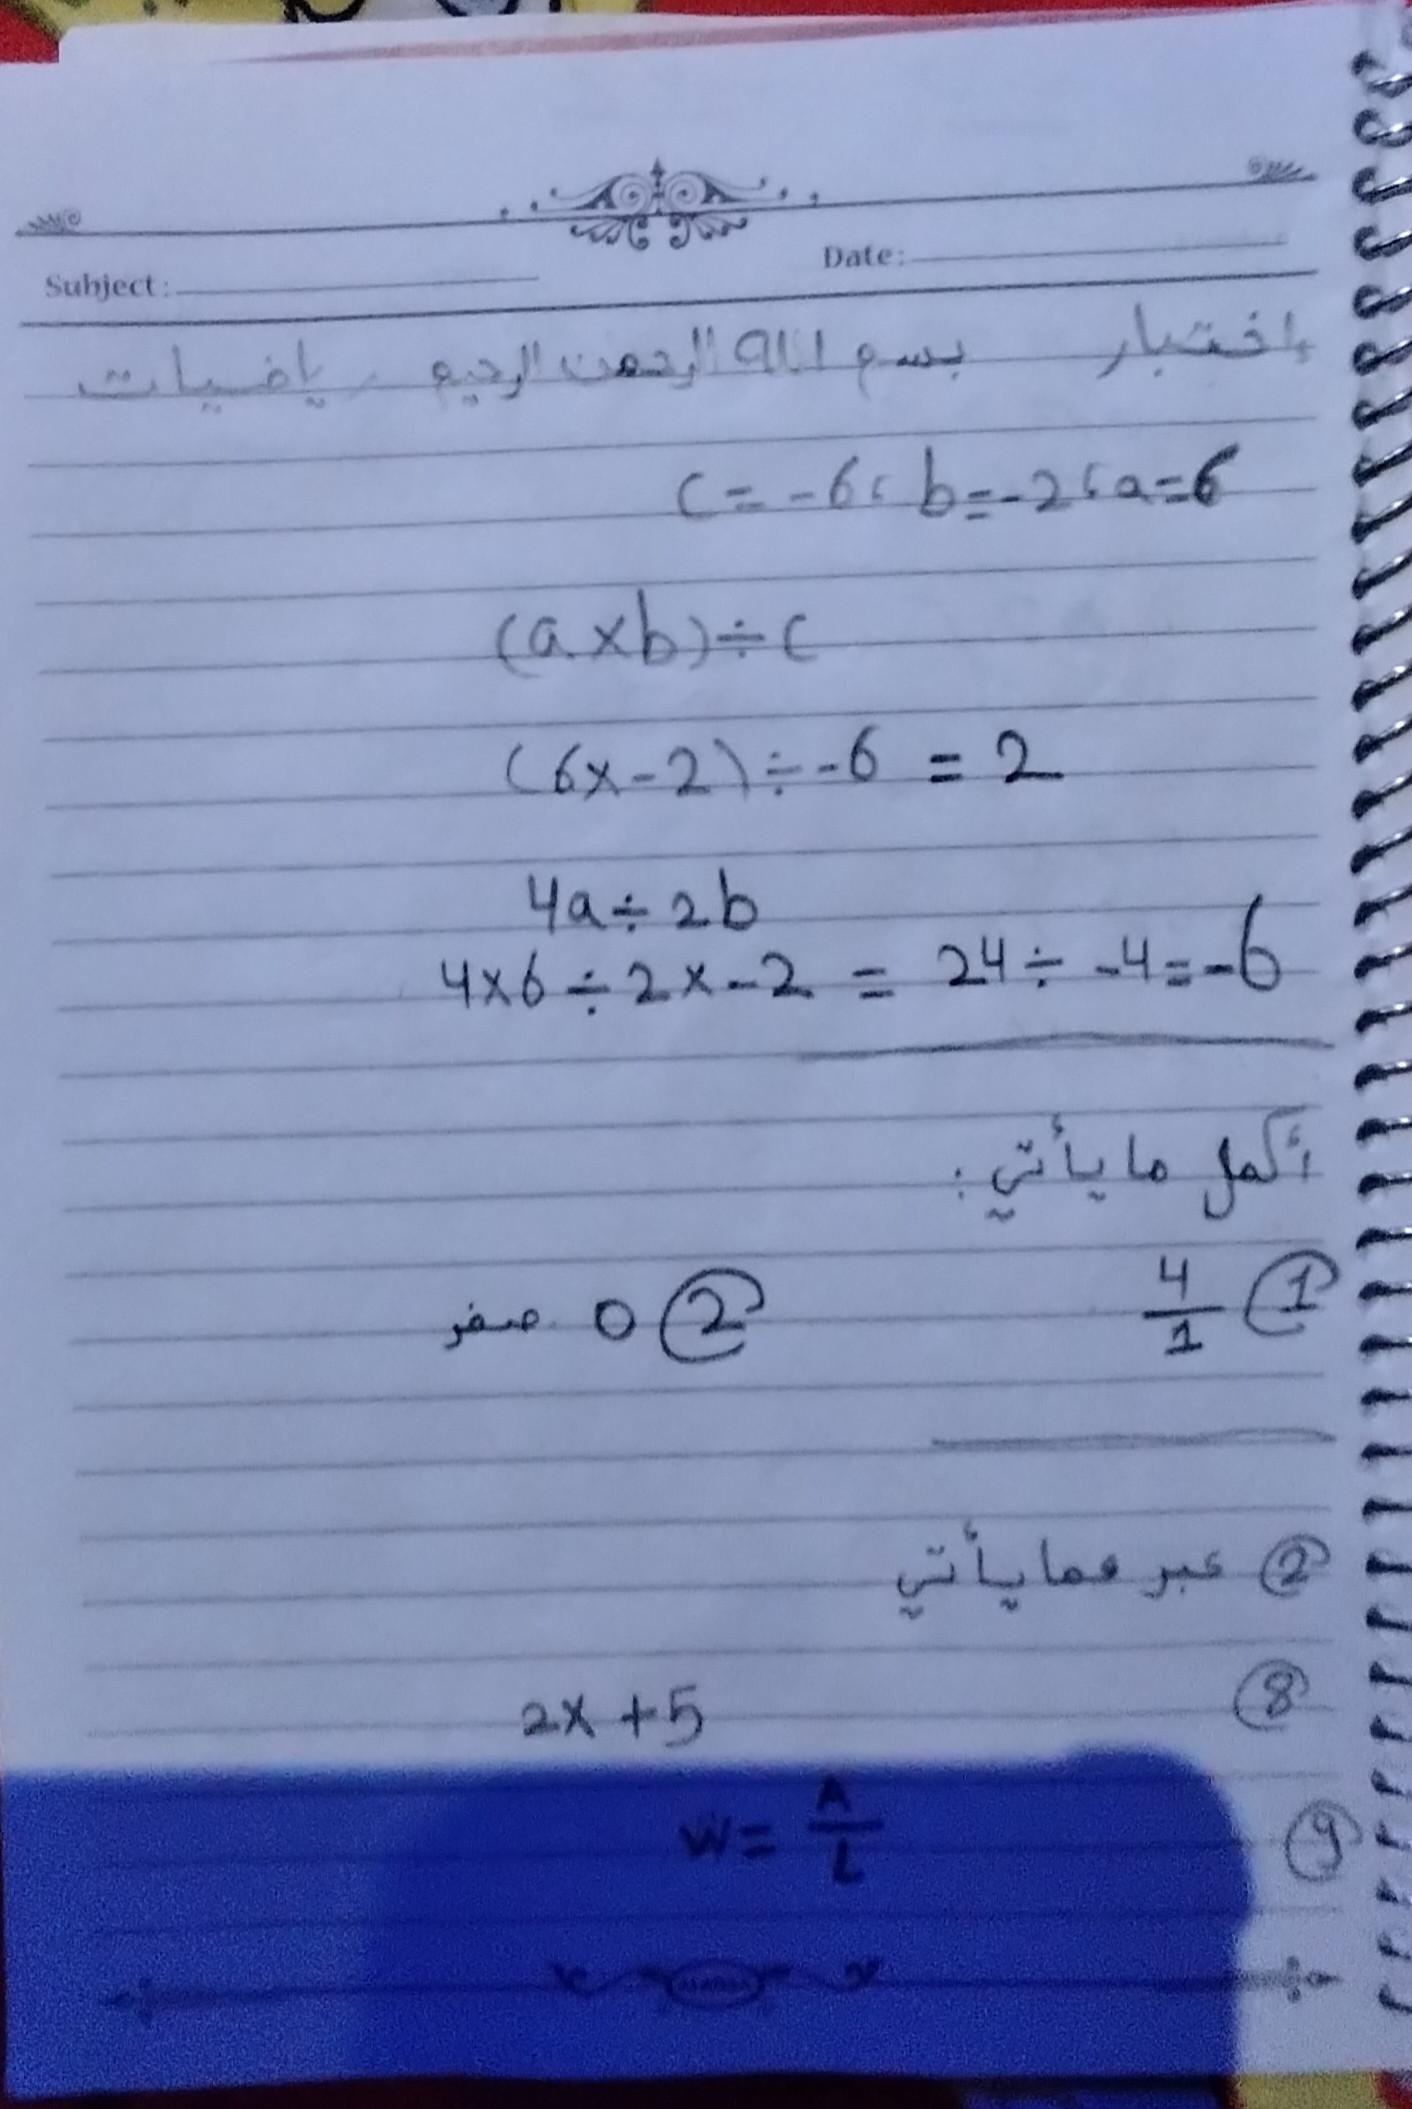 Subject: Date:
إختبار بسم الله الرحمن الرحيم رياضيات
c = -6 ، b = -2 ، a = 6
(a×b)÷c
(6×-2)÷-6 = 2
4a÷2b
4×6÷2×-2 = 24÷-4=-6
أكمل ما يأتي:
1 4/1 2 0 صفر
2 عبر عما يأتي
8 2x+5
9 W= A/L